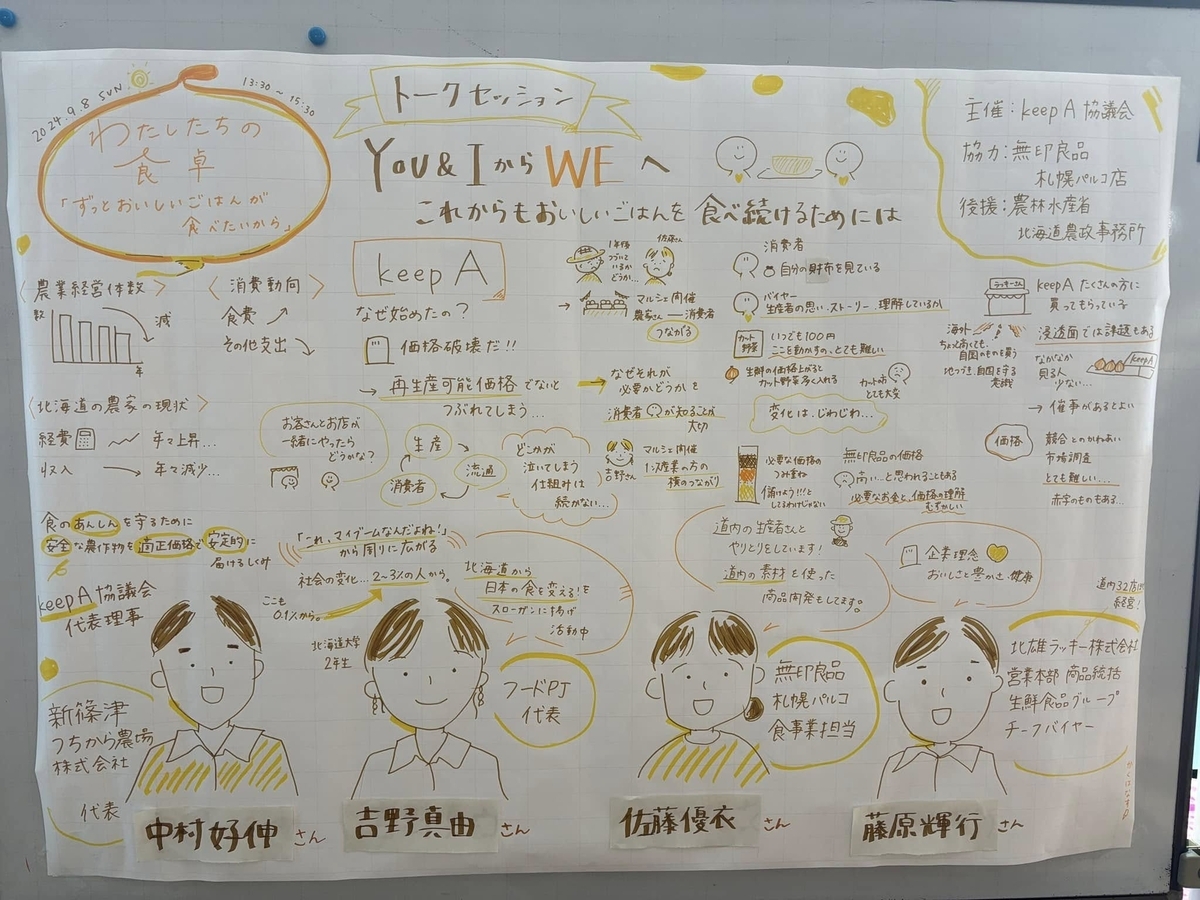 2024.9.8 SUN
13:30〜15:30
わたしたちの
食卓
「ずっとおいしいごはんが
食べたいから」
トークセッション
YOU & I から WE へ
これからもおいしいごはんを 食べ続けるためには
主催：keep A 協議会
協力：無印良品
札幌パルコ店
後援：農林水産省
北海道農政事務所
〈農業経営体数〉
数
減
年
〈消費動向〉
食費
その他支出
〈北海道の農家の現状〉
経費
年々上昇…
収入
年々減少…
食のあんしんを守るために
安全な農作物を適正価格で安定的に
届けるしくみ
keep A
なぜ始めたの？
価格破壊だ!!
→ 再生産可能価格でないと
つぶれてしまう…
お客さんとお店が
一緒にやったら
どうかな？
生産
流通
消費者
どこかが
泣いてしまう
仕組みは
続かない…
「これ、マイブームなんだよね！」
から周りに広がる
社会の変化… 2〜3%の人から。
ここも
0.1%から。
北海道から
日本の食を変える！を
スローガンに掲げ
活動中
1年後
つづいて
いるか
どうか…
佐藤さん
→ マルシェ開催
農家さん―消費者
つながる
なぜそれが
必要かどうかを
消費者が知ることが
大切
吉野さん
マルシェ開催
1次産業の方の
横のつながり
消費者
自分の財布を見ている
バイヤー
生産者の思い、ストーリー、理解しているが
カット
野菜
いつでも100円
ここを動かすの、とても難しい
生鮮の価格上がると
カット野菜多く入れる
カットの
とても大変
変化は、じわじわ…
必要な価格の
つみ重ね
儲けよう!!!と
してるわけじゃない
無印良品の価格
高い…と思われることもある
必要なお金と、価格の理解
むずかしい
道内の生産者さんと
やりとりをしています！
道内の素材を使った
商品開発もしてます。
ラッキーさん
keep A たくさんの方に
買ってもらっている
海外
ちょっと高くても、
自国のものを買う
地つづき、自国を守る
意識
浸透面では課題もある
なかなか
見る人
少ない…
keep A
→ 催事があるとよい
価格
競合とのかねあい
市場調査
とても難しい…
赤字のものもある…
企業理念
おいしさと豊かさ、健康
道内32店舗
経営！
keep A 協議会
代表理事
新篠津
つちから農場
株式会社
代表
中村好伸 さん
北海道大学
2年生
フードPJ
代表
吉野真由 さん
無印良品
札幌パルコ
食事業担当
佐藤優衣 さん
北雄ラッキー株式会社
営業本部 商品統括
生鮮食品グループ
チーフバイヤー
藤原輝行 さん